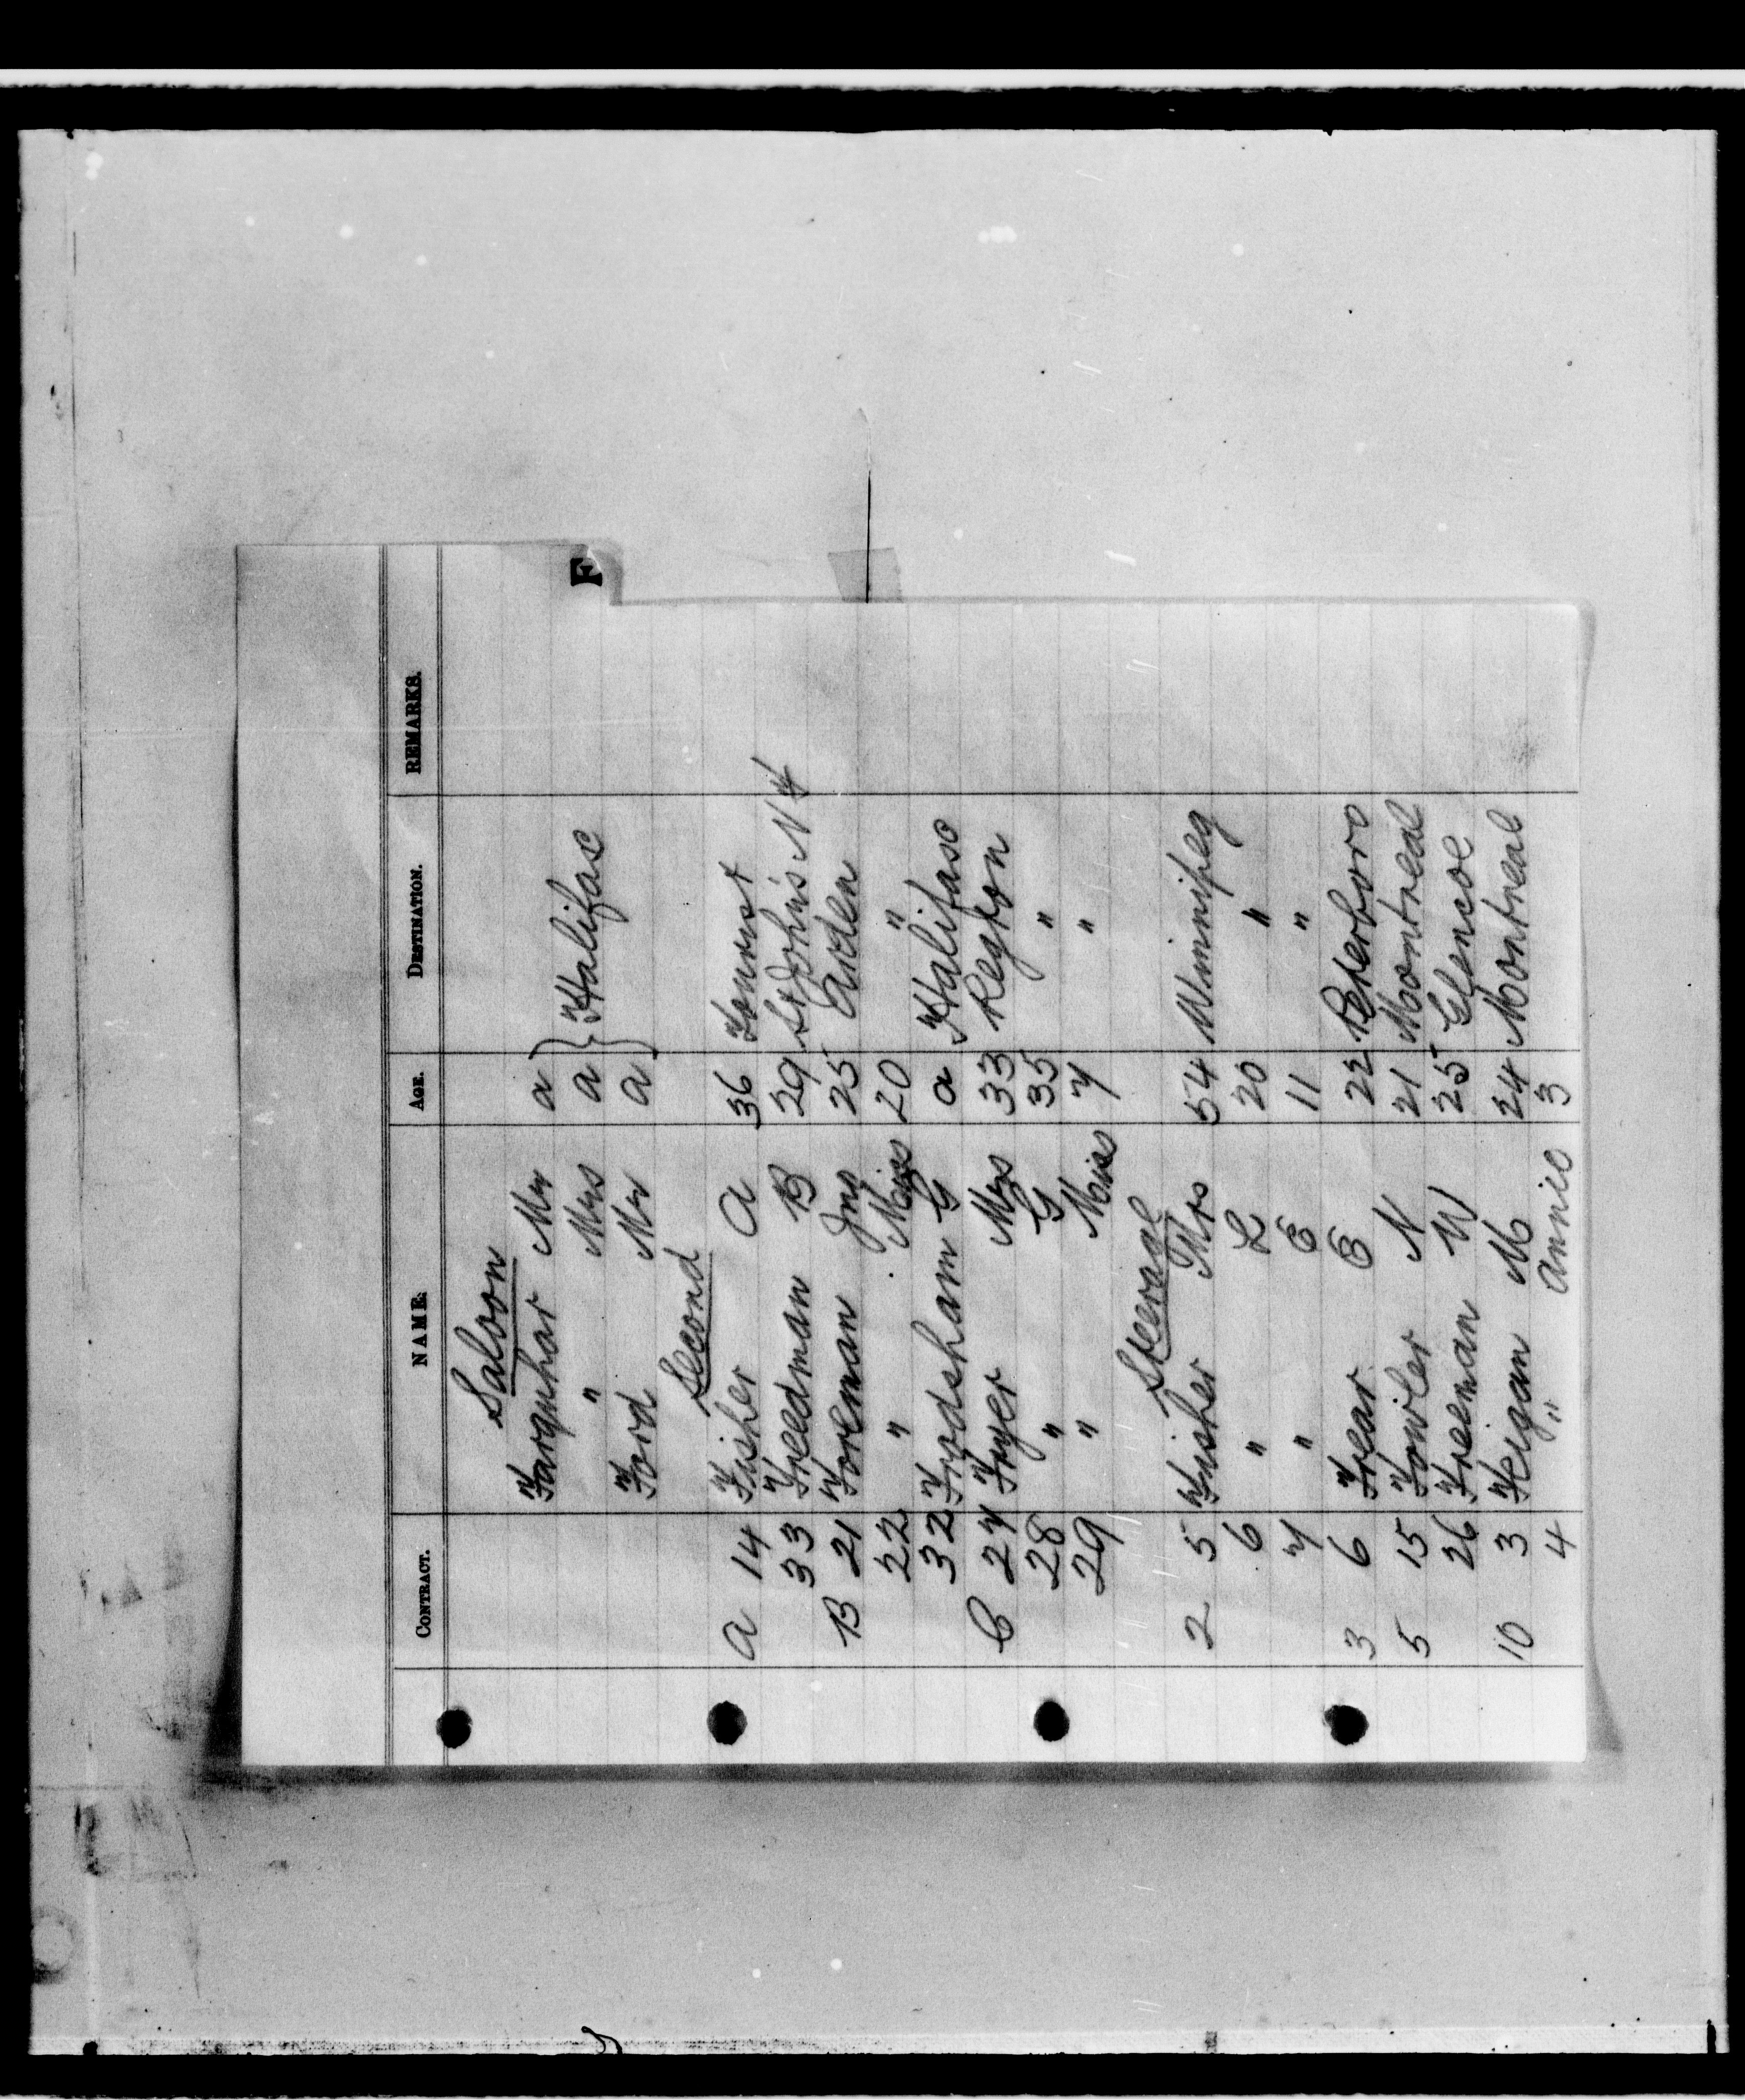 F
CONTRACT. NAME. AGE. DESTINATION. REMARKS.
Saloon
Farquhar Mr a
" Mrs a } Halifax
Ford Mr a
Second
A 14 Fisher A 36 Tourist
33 Freedman B 29 St John's Nf
B 21 Foreman Jno 25 Arden
22 " Miss 20 "
32 Frodsham G a Halifax
C 27 Fryer Mrs 33
28 " G 35 "
29 " Miss 7 "
Steerage
2 5 Fisher Mrs 54 Winnipeg
6 " L 20 "
7 " E 11 "
3 6 Frear E 22 Peterboro
5 15 Fowler N 21 Montreal
26 Freeman W 25 Glencoe
10 3 Feigan M 24 Montreal
4 " Annie 3